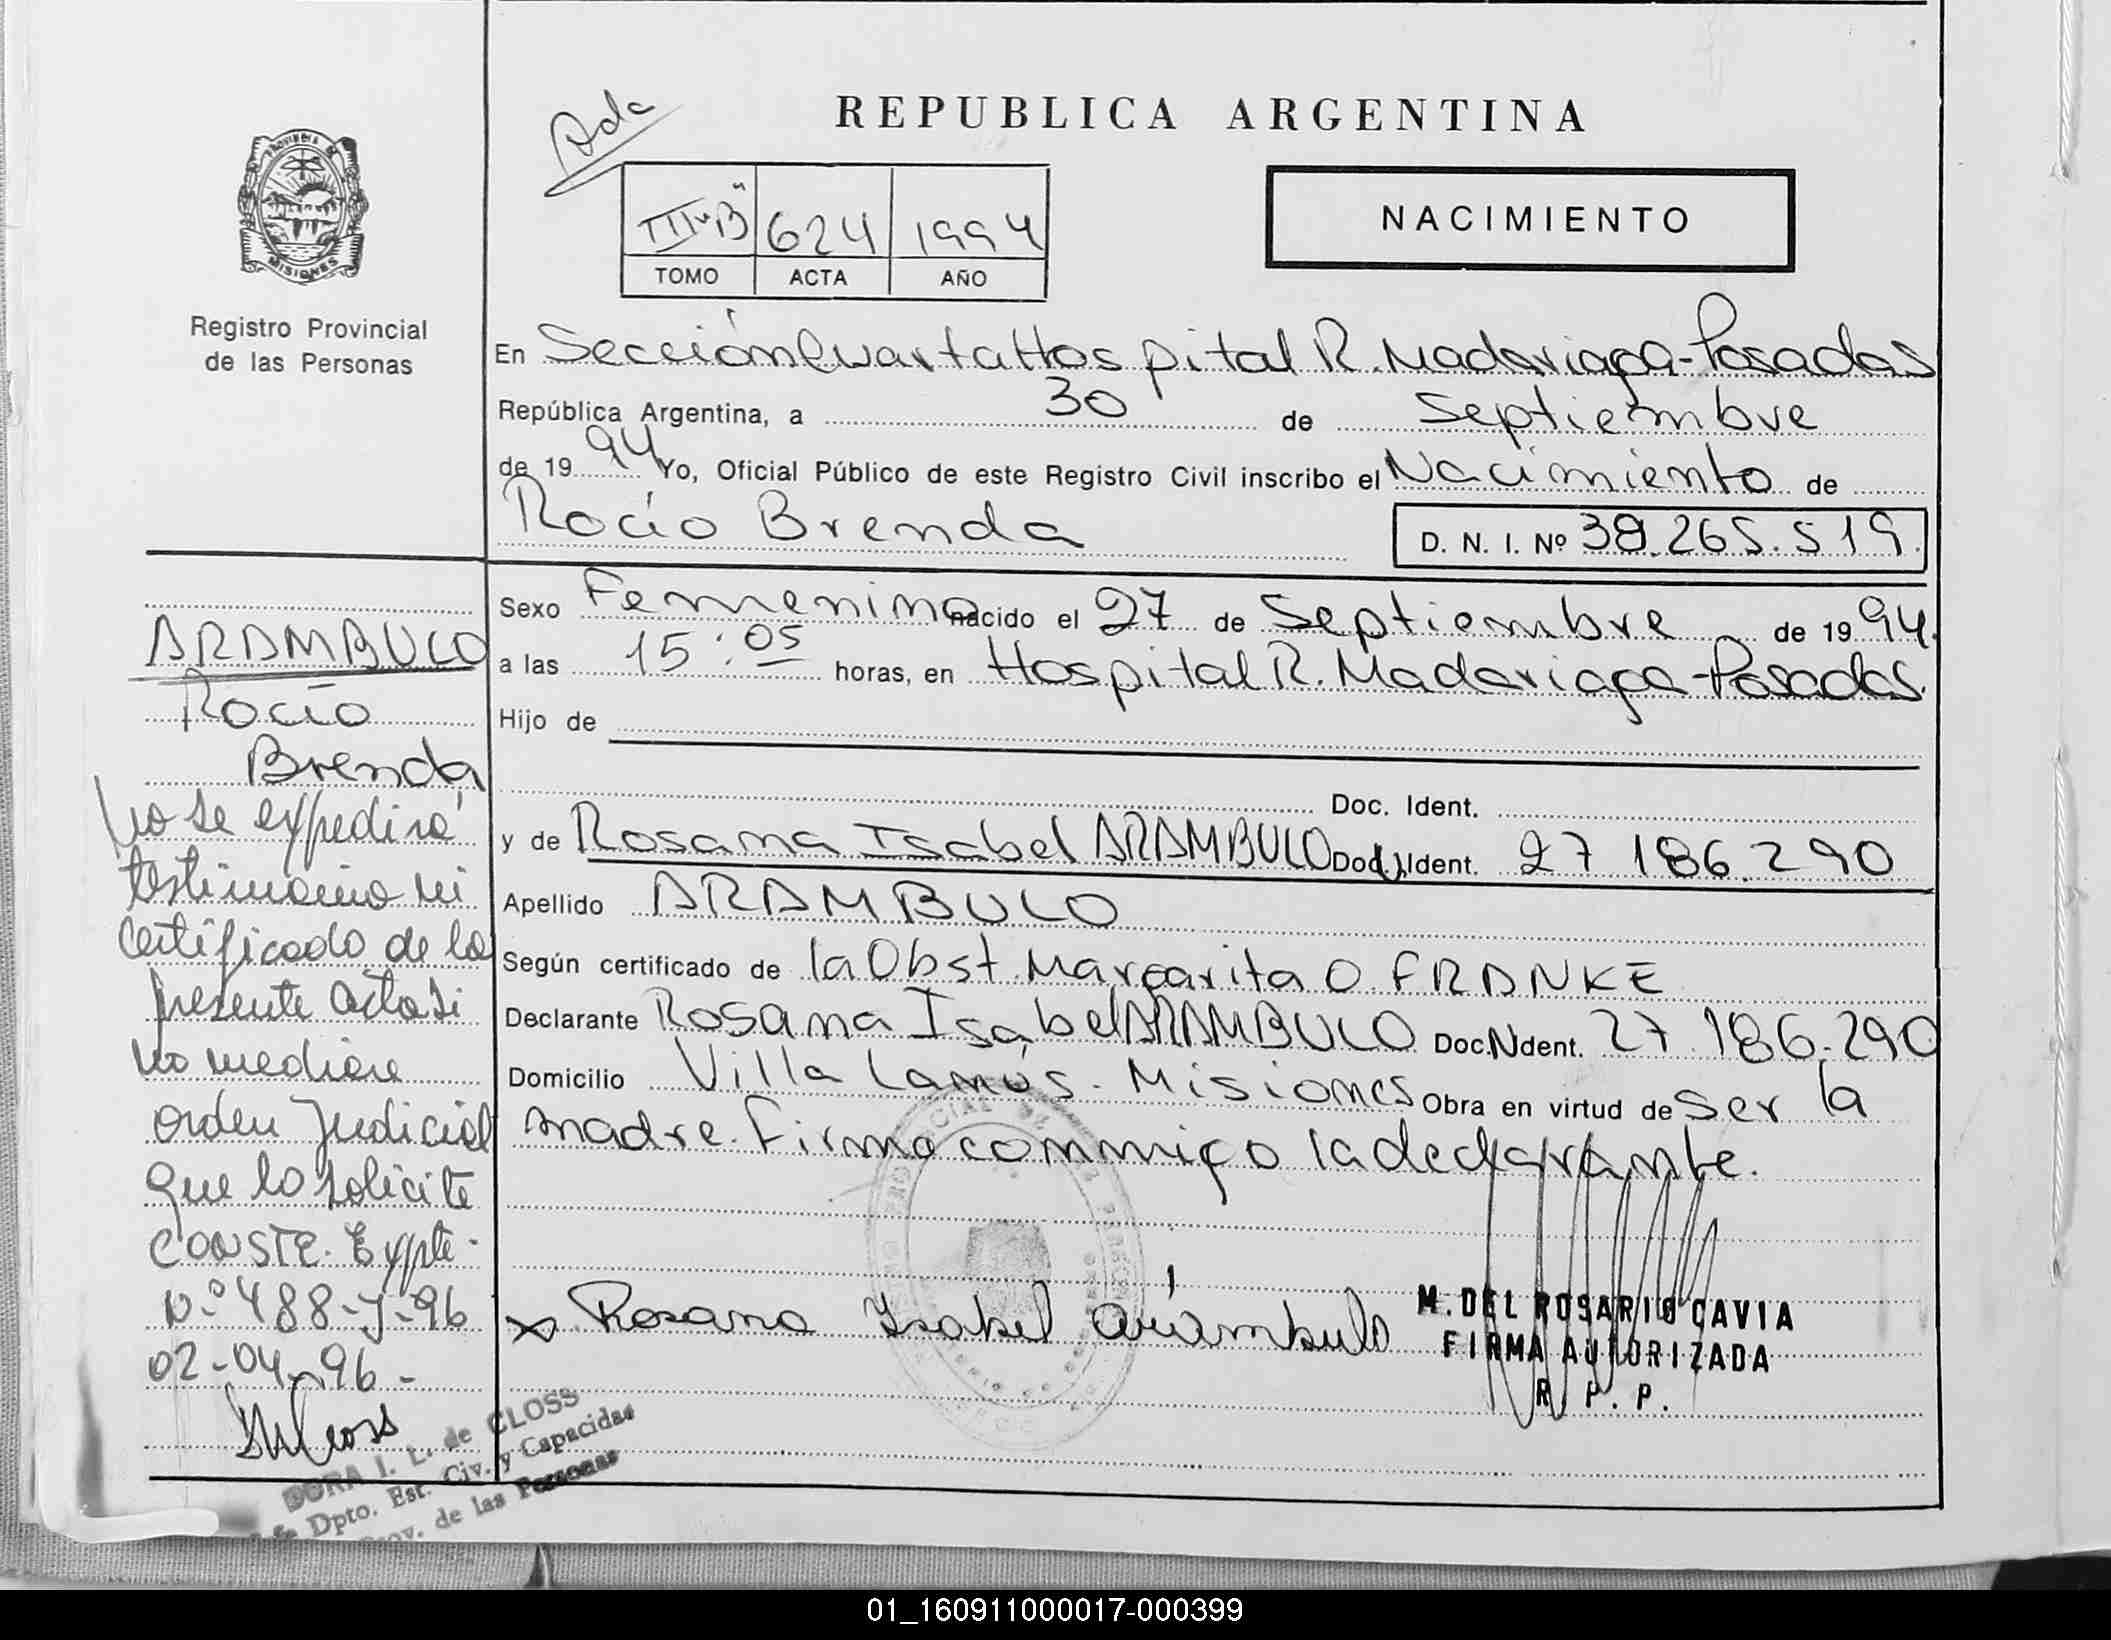 REPUBLICA ARGENTINA
Ada
III "B" 624 1994
TOMO ACTA AÑO
NACIMIENTO
PROVINCIA DE
MISIONES
Registro Provincial
de las Personas
En Sección Cuarta Hospital R. Madariaga - Posadas
República Argentina, a 30 de Septiembre
de 1994 Yo, Oficial Público de este Registro Civil inscribo el Nacimiento de
Rocío Brenda
D. N. I. Nº 38.265.519.
Sexo Femenino nacido el 27 de Septiembre de 1994.
a las 15:05 horas, en Hospital R. Madariaga - Posadas.
Hijo de
Doc. Ident.
y de Rosana Isabel ARAMBULO Doc. Ident. 27 186.290
Apellido ARAMBULO
Según certificado de la Obst. Margarita O. FRANKE
Declarante Rosana Isabel ARAMBULO Doc. Ident. 27 186.290
Domicilio Villa Lanús - Misiones Obra en virtud de ser la
madre. Firma conmigo la declarante.
x Rosana Isabel Arámbulo
M. DEL ROSARIO CAVIA
FIRMA AUTORIZADA
R. P. P.
ARAMBULO
Rocío
Brenda
No se expedirá
testimonio ni
certificado de la
presente acta si
no mediare
orden Judicial
que lo solicite
CONSTE. Expte.
Nº 488-J-96
02-04-96-
DORA I. L. de CLOSS
Dpto. Est. Civ. y Capacidad
Prov. de las Personas
01_160911000017-000399